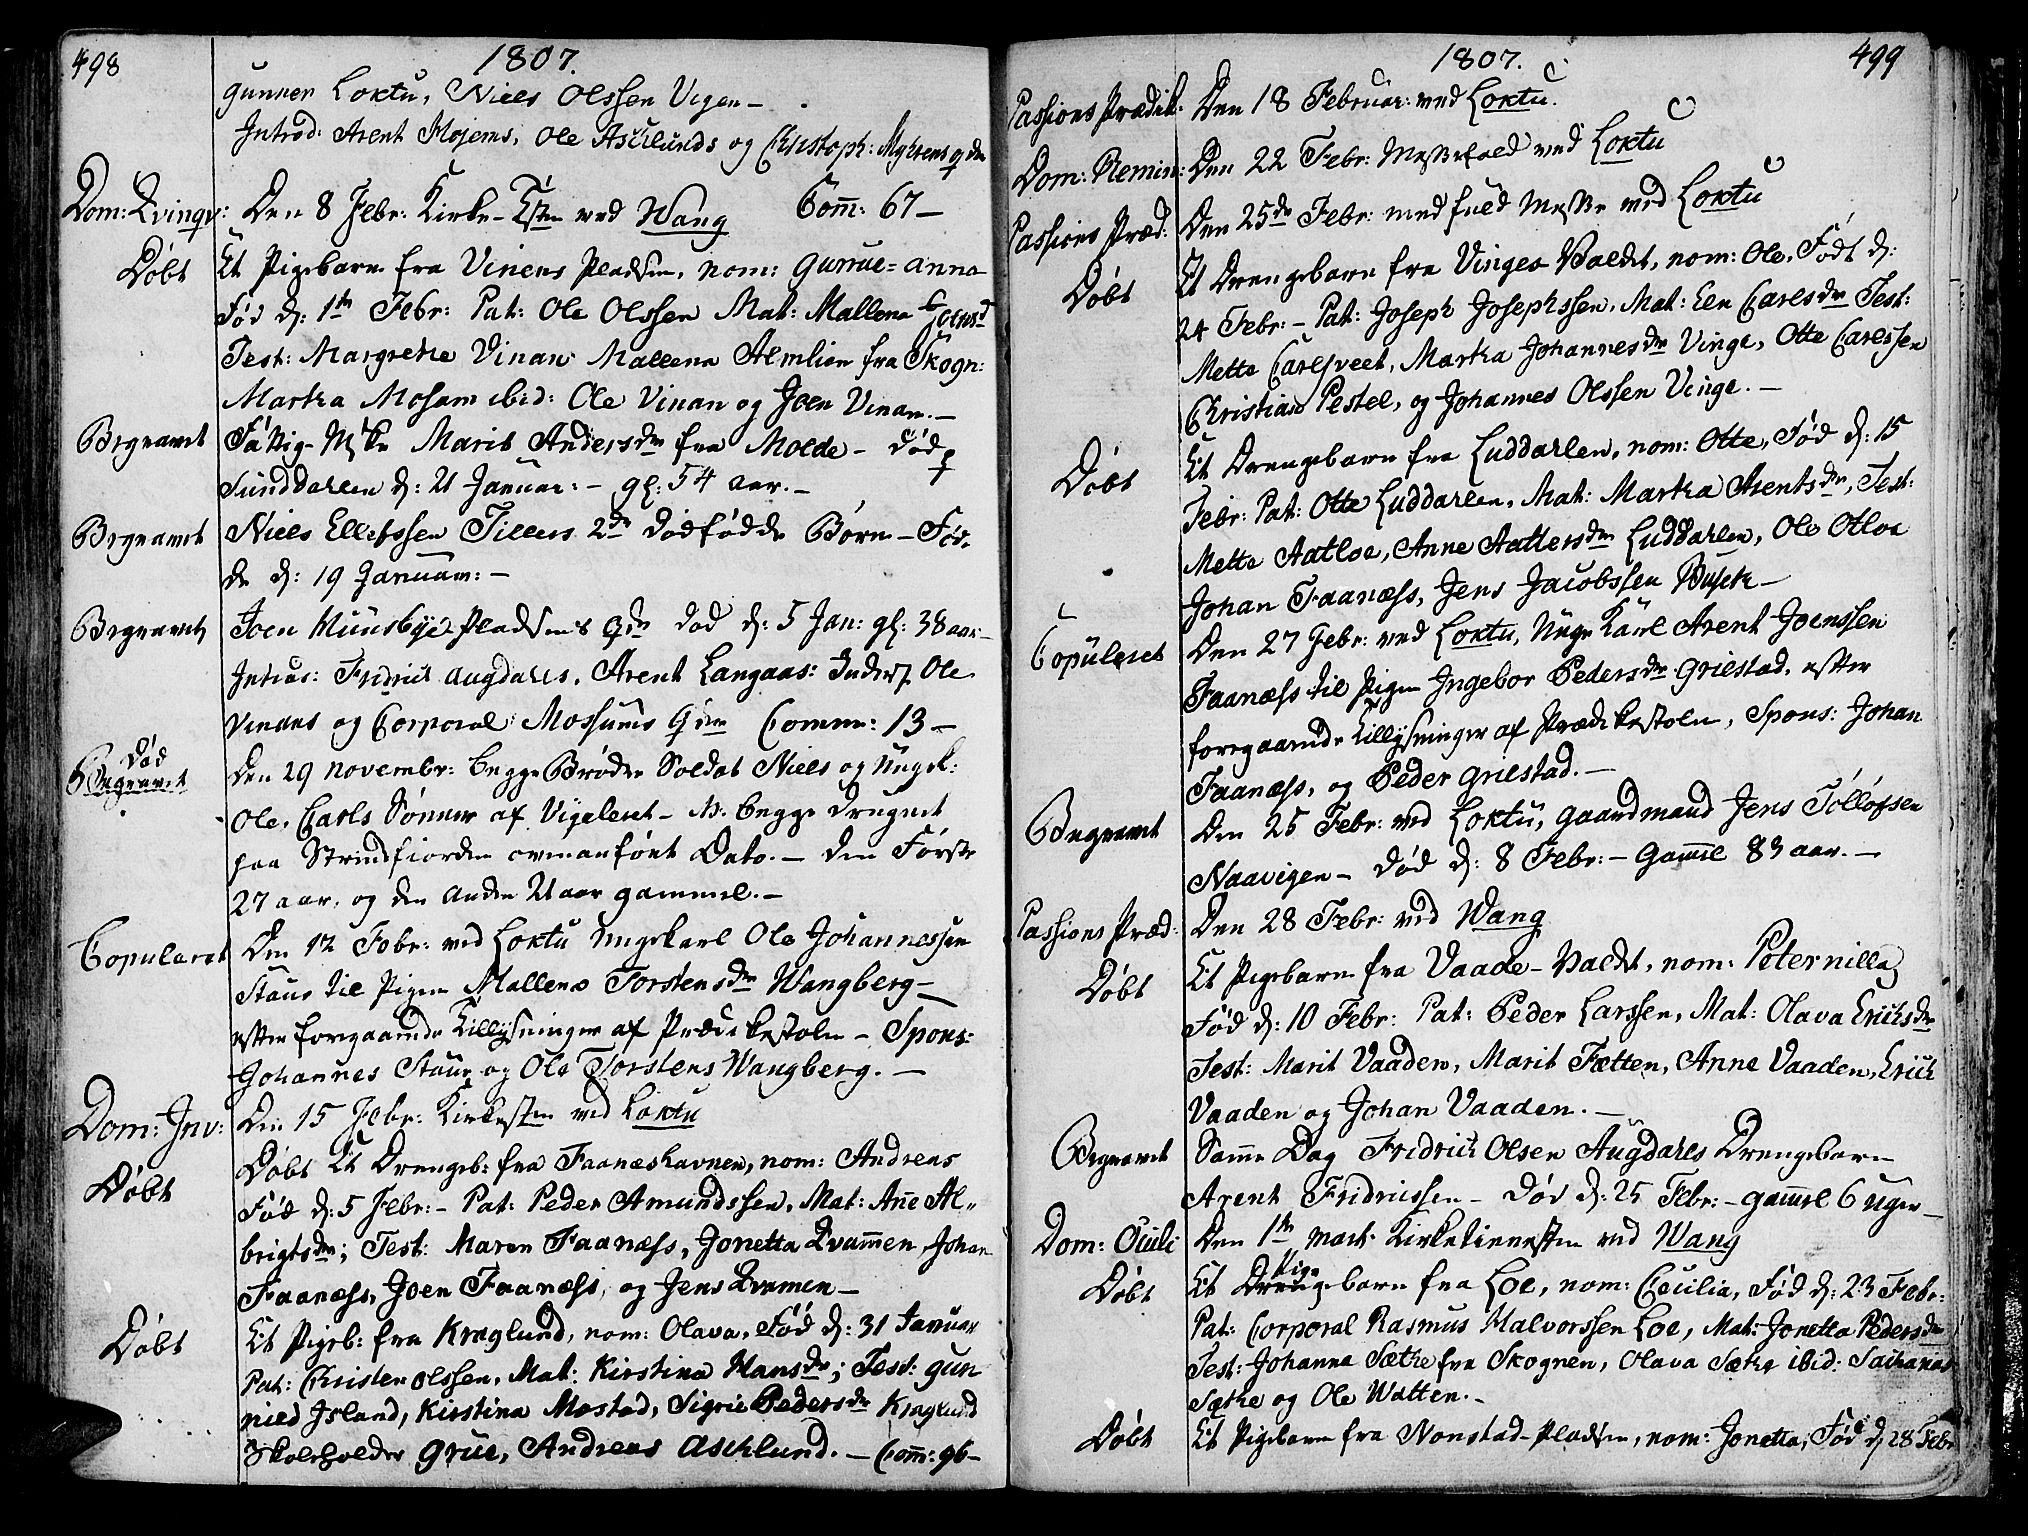 498
1807.
Gunner Loktu, Niels Olssen Vigen —
Introd: Arent Mosems, Ole Aschlunds og Christoph: Myhrens q den
Dom: Qvinqv: Den 8 Febr: Kirke-Tjsten ved Wang Com̄: 67 —
Døbt Et Pigebarn fra Vinens Pladsen, nom: Gurrue-anna
Fød d: 1te Febr: Pat: Ole Olssen Mat: Mallena Joensd
Test: Margrethe Vinan Mallena Almlien fra Skogn:
Martha Mosam ibid: Ole Vinan og Joen Vinan. —
Begravet Fattig-Myke Marit Andersdr fra Molde — død p
Sunddahlen d: 21 Januar: — gl: 54 aar. —
Begravet Niels Ellefssen Tillers 2de dødfødde Børn — Fød-
de d: 19 Januar: —
Begravet Joen Muusbye-pladsens Qde død d: 5 Jan: gl: 38 aar —
Introd: Fridrich Augdahls, Arent Langaas: Inders, Ole
Vinans og Corporal Mossums Qvin Comm: 13 —
Død
Begravet Den 29 novembr: begge Brødre Soldat Niels og Ungk:
Ole, Carls Sønner af Vigeleret — N. begge druknet
paa Strindfiorden ovenanført Dato. — den Første
27 aar, og den anden 21 aar gammel. —
Copuleret Den 12 Febr: ved Loktu Ungekarl Ole Johannessen
Staur til Pigen Mallena Torstensdr Wangberg —
efter foregaaende Tillysninger af Prædikestolen — Spons:
Johannes Staur og Ole Torstens Wangberg. —
Dom: Inv: Den 15 Febr: Kirketjsten ved Loktu
Døbt Døbt Et Drengeb: fra Faaneshavnen, nom: Andreas
Fød d: 5 Febr: — Pat: Peder Amundssen, Mat: An̄e Al-
brigtsdr; Test: Maren Faanæss, Jonetta Qvam̄en, Johan
Faanæss, Joen Faanæss, og Jens Qvamen —
Døbt Et Pigeb: fra Kraglund, nom: Olava, Fød d: 31 Januar
Pat: Christen Olssen, Mat: Kirstina Hansdr; Test: Gun
nild Island, Kirstina Mostad, Sigrie Pedersdr Kraglund
Skoleholder Grue, Andreas Aschlund. — Com̄: 96 —
1807.
499
Passions Prædik: Den 18 Februar: ved Loktu.
Dom: Remin: Den 22 Febr: Messefald ved Loktu
Passions Præd: Den 25de Febr: med fuld Messe ved Loktu
Døbt Et Drengebarn fra Vinges Valdet, nom: Ole, Født d:
24 Febr: — Pat: Joseph Josephssen, Mat: Elen Carlsdr Test:
Mette Carlsveet, Martha Johannesdr Vinge, Otte Carlssen
Christian Pestel, og Johannes Olssen Vinge. —
Døbt Et Drengebarn fra Luddahlen, nom: Otte, Fød d: 15
Febr: Pat: Otte Luddahlen, Mat: Martha Arentsdr, Test:
Mette Aatloe, Anne Aattersdr Luddahlen, Ole Otloe
Johan Faanæss, Jens Jacobssen Busch —
Copuleret Den 27 Febr: ved Loktu, Unge Karl Arent Joenssen
Faanæss til Pigen Ingebor Pedersdr Grilstad, efter
foregaaende Tillysninger af Prædikestolen, Spons: Johan
Faanæss, og Peder Grilstad. —
Begravet Den 25 Febr: ved Loktu, Gaardmand Jens Tolløfsen
Naavigen — død d: 8 Febr: — gam̄el 83 aar. —
Passions Præd: Den 28 Febr: ved Wang
Døbt Et Pigebarn fra Vaade-Valdet, nom: Peternilla,
Fød d: 10 Febr: Pat: Peder Larssen, Mat: Olava Erichsdr
Test: Marit Vaaden, Marit Fætten, Anne Vaaden, Erich
Vaaden og Johan Vaaden. —
Begravet Samme Dag Fridrich Olsen Augdahls Drengebarn
Arent Fridrichssen — Død d: 25 Febr: — gam̄el 6 uger —
Dom: Oculi Den 1te Marts Kirketienesten ved Wang
Pige
Døbt Et Drengebarn fra Loe, nom: Cecilia, Fød d: 23 Febr:
Pat: Corporal Rasmus Halvorssen Loe, Mat: Jonetta Pedersdr
Test: Johanna Sæthe fra Skognen, Olava Sæthe ibid: Sacharias
Sæthe og Ole Watten. —
Døbt Et Pigebarn fra Nonstad-Pladsen, nom: Jonetta, Fød d 28 Febr